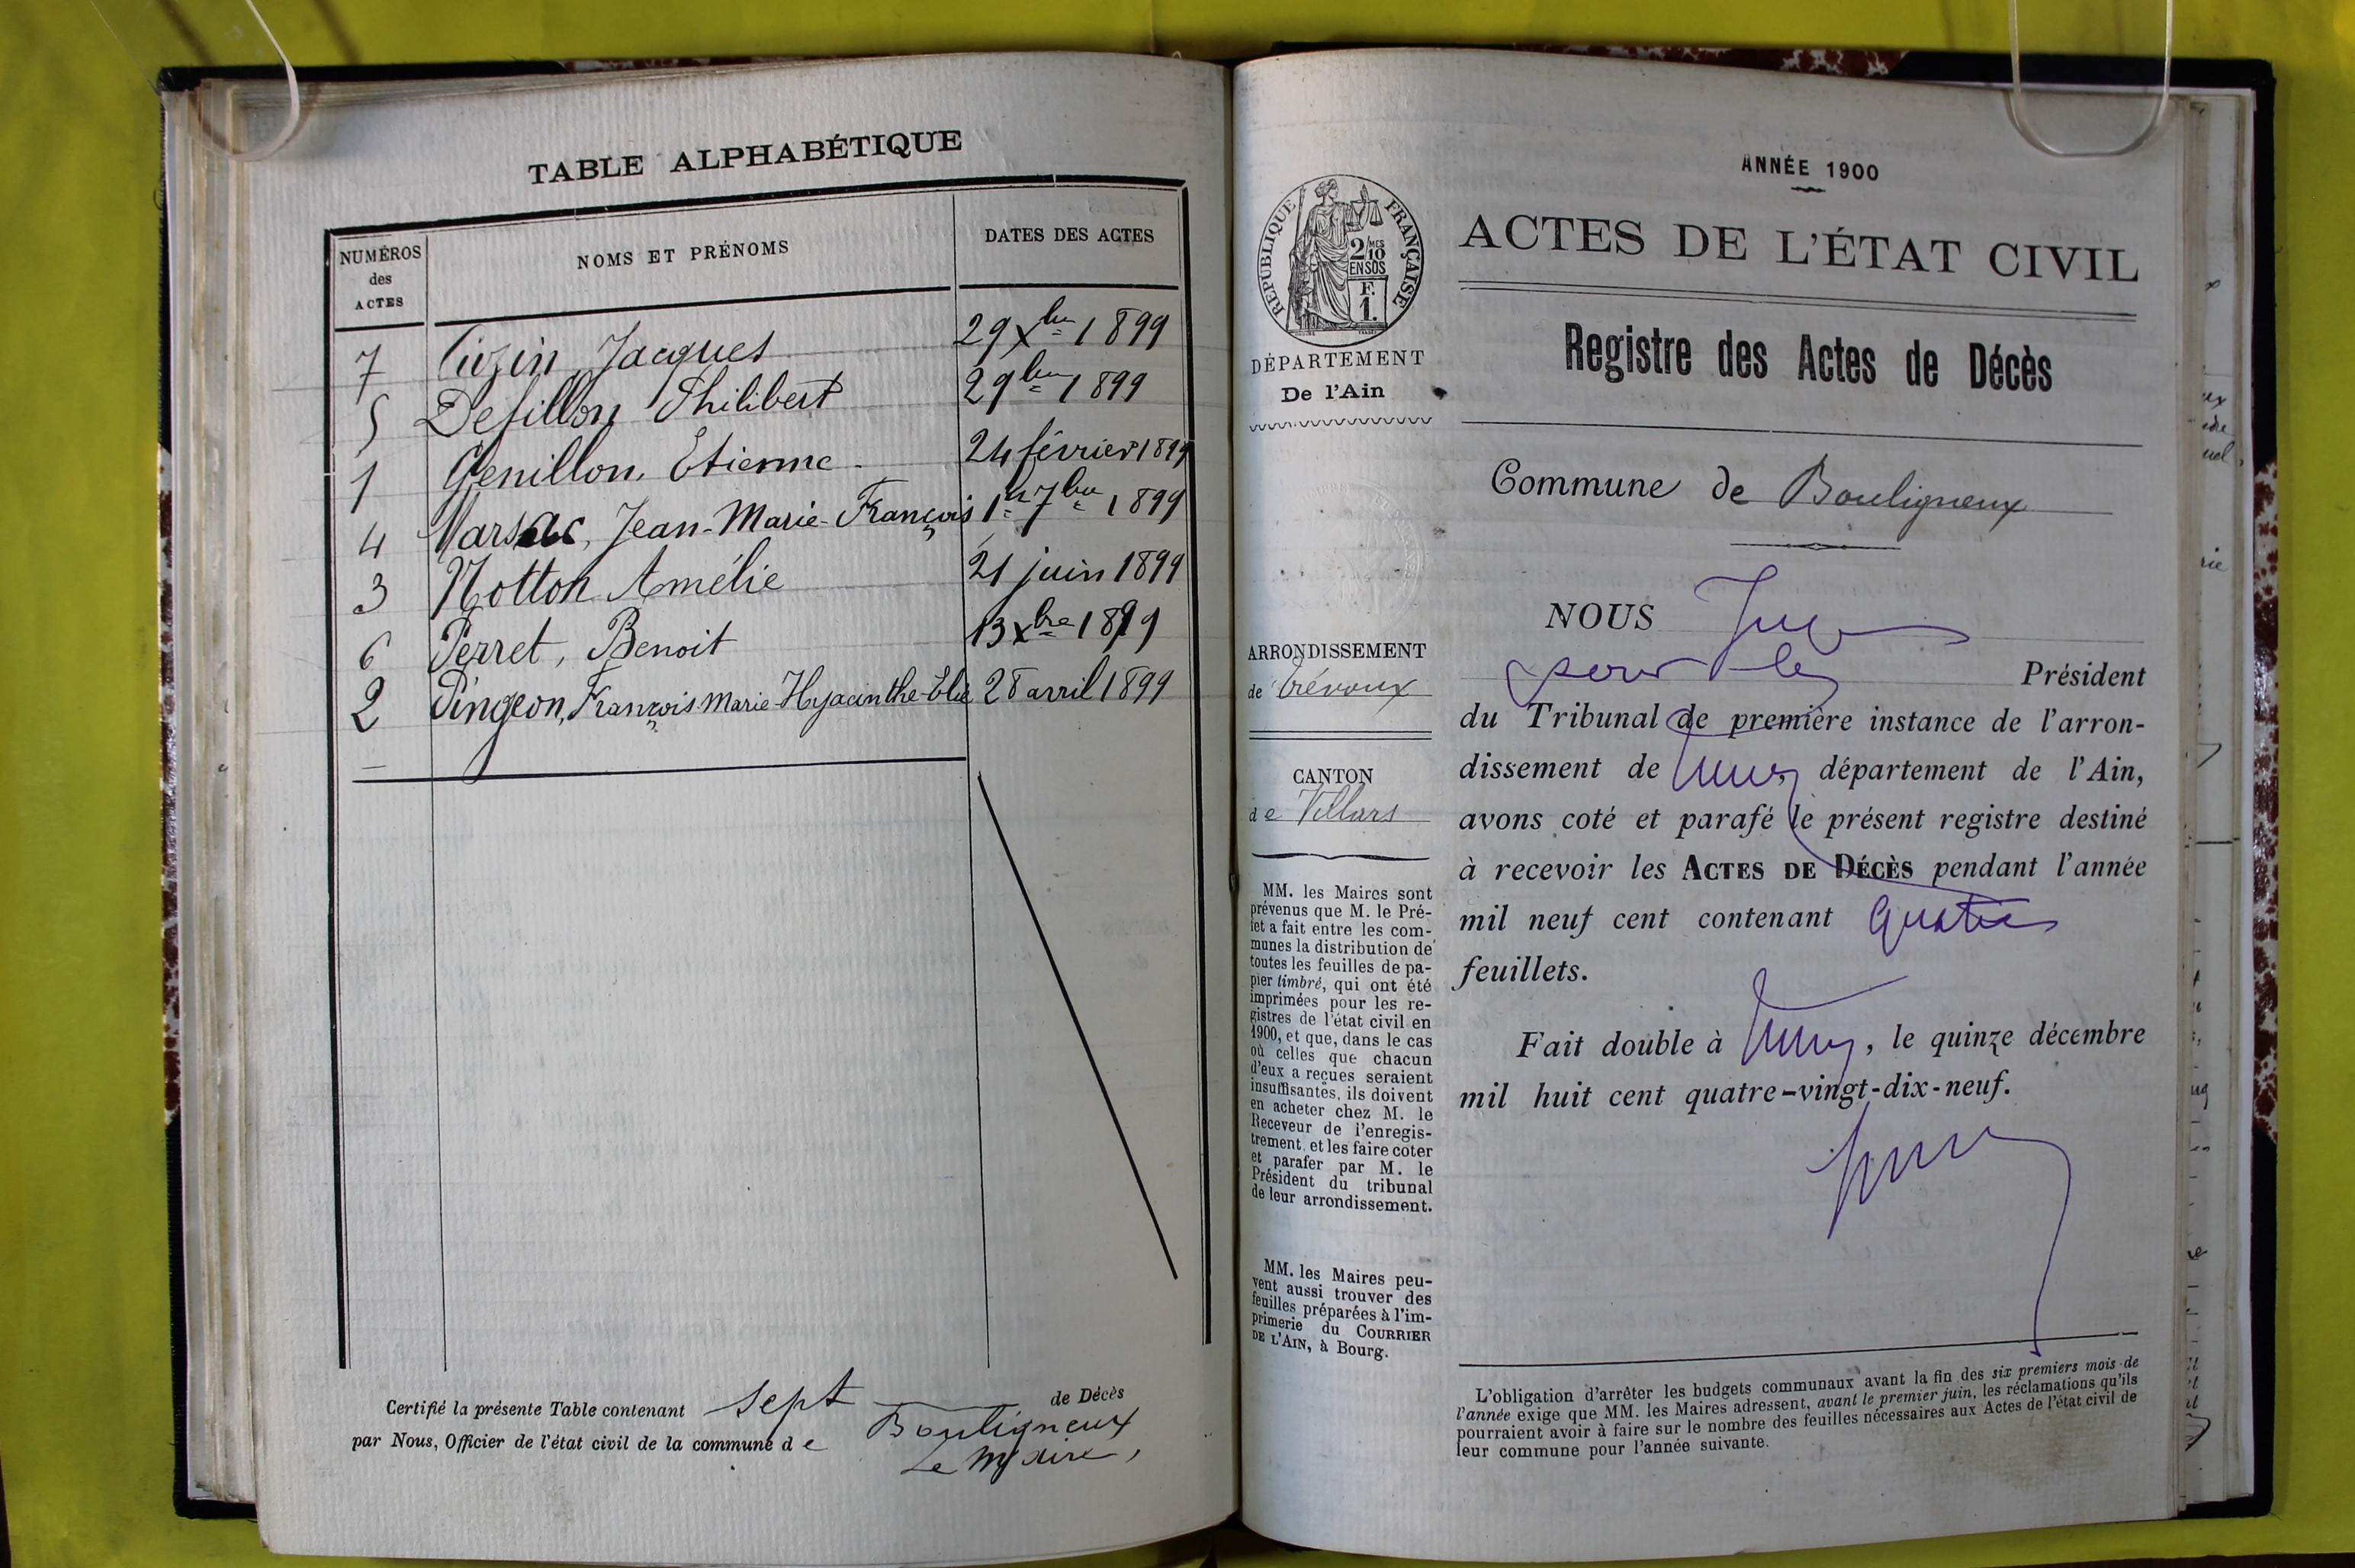 TABLE ALPHABÉTIQUE
NUMÉROS
des
ACTES
NOMS ET PRÉNOMS
DATES DES ACTES
7 Cuzin Jacques 29 Xbre 1899
5 Philibert 1899
1 Genillon, Etienne 24 février 1899
4 Marsac, Jean-Marie-François 1er 7bre 1899
3 Notton Amélie 21 juin 1899
6 Perret, Benoit 13 Xbre 1899
2 Pingeon, François Marie-Hyacinthe-Elie 28 avril 1899
Certifié la présente Table contenant sept de Décès
par Nous, Officier de l'état civil de la commune de Bouligneux
Le Maire,
ANNÉE 1900
RÉPUBLIQUE FRANÇAISE
2/10 MES
EN SUS
F.
1.
DÉPARTEMENT
De l'Ain
ARRONDISSEMENT
de Trévoux
CANTON
de Villars
MM. les Maires sont
prévenus que M. le Pré-
fet a fait entre les com-
munes la distribution de
toutes les feuilles de pa-
pier timbré, qui ont été
imprimées pour les re-
gistres de l'état civil en
1900, et que, dans le cas
où celles que chacun
d'eux a reçues seraient
insuffisantes, ils doivent
en acheter chez M. le
Receveur de l'enregis-
trement, et les faire coter
et parafer par M. le
Président du tribunal
de leur arrondissement.
MM. les Maires peu-
vent aussi trouver des
feuilles préparées à l'im-
primerie du COURRIER
DE L'AIN, à Bourg.
ACTES DE L'ÉTAT CIVIL
Registre des Actes de Décès
Commune de Bouligneux
NOUS Juge
pour le Président
du Tribunal de première instance de l'arron-
dissement de , département de l'Ain,
avons coté et parafé le présent registre destiné
à recevoir les ACTES DE DÉCÈS pendant l'année
mil neuf cent contenant quatre
feuillets.
Fait double à , le quinze décembre
mil huit cent quatre-vingt-dix-neuf.
L'obligation d'arrêter les budgets communaux avant la fin des six premiers mois de
l'année exige que MM. les Maires adressent, avant le premier juin, les réclamations qu'ils
pourraient avoir à faire sur le nombre des feuilles nécessaires aux Actes de l'état civil de
leur commune pour l'année suivante.